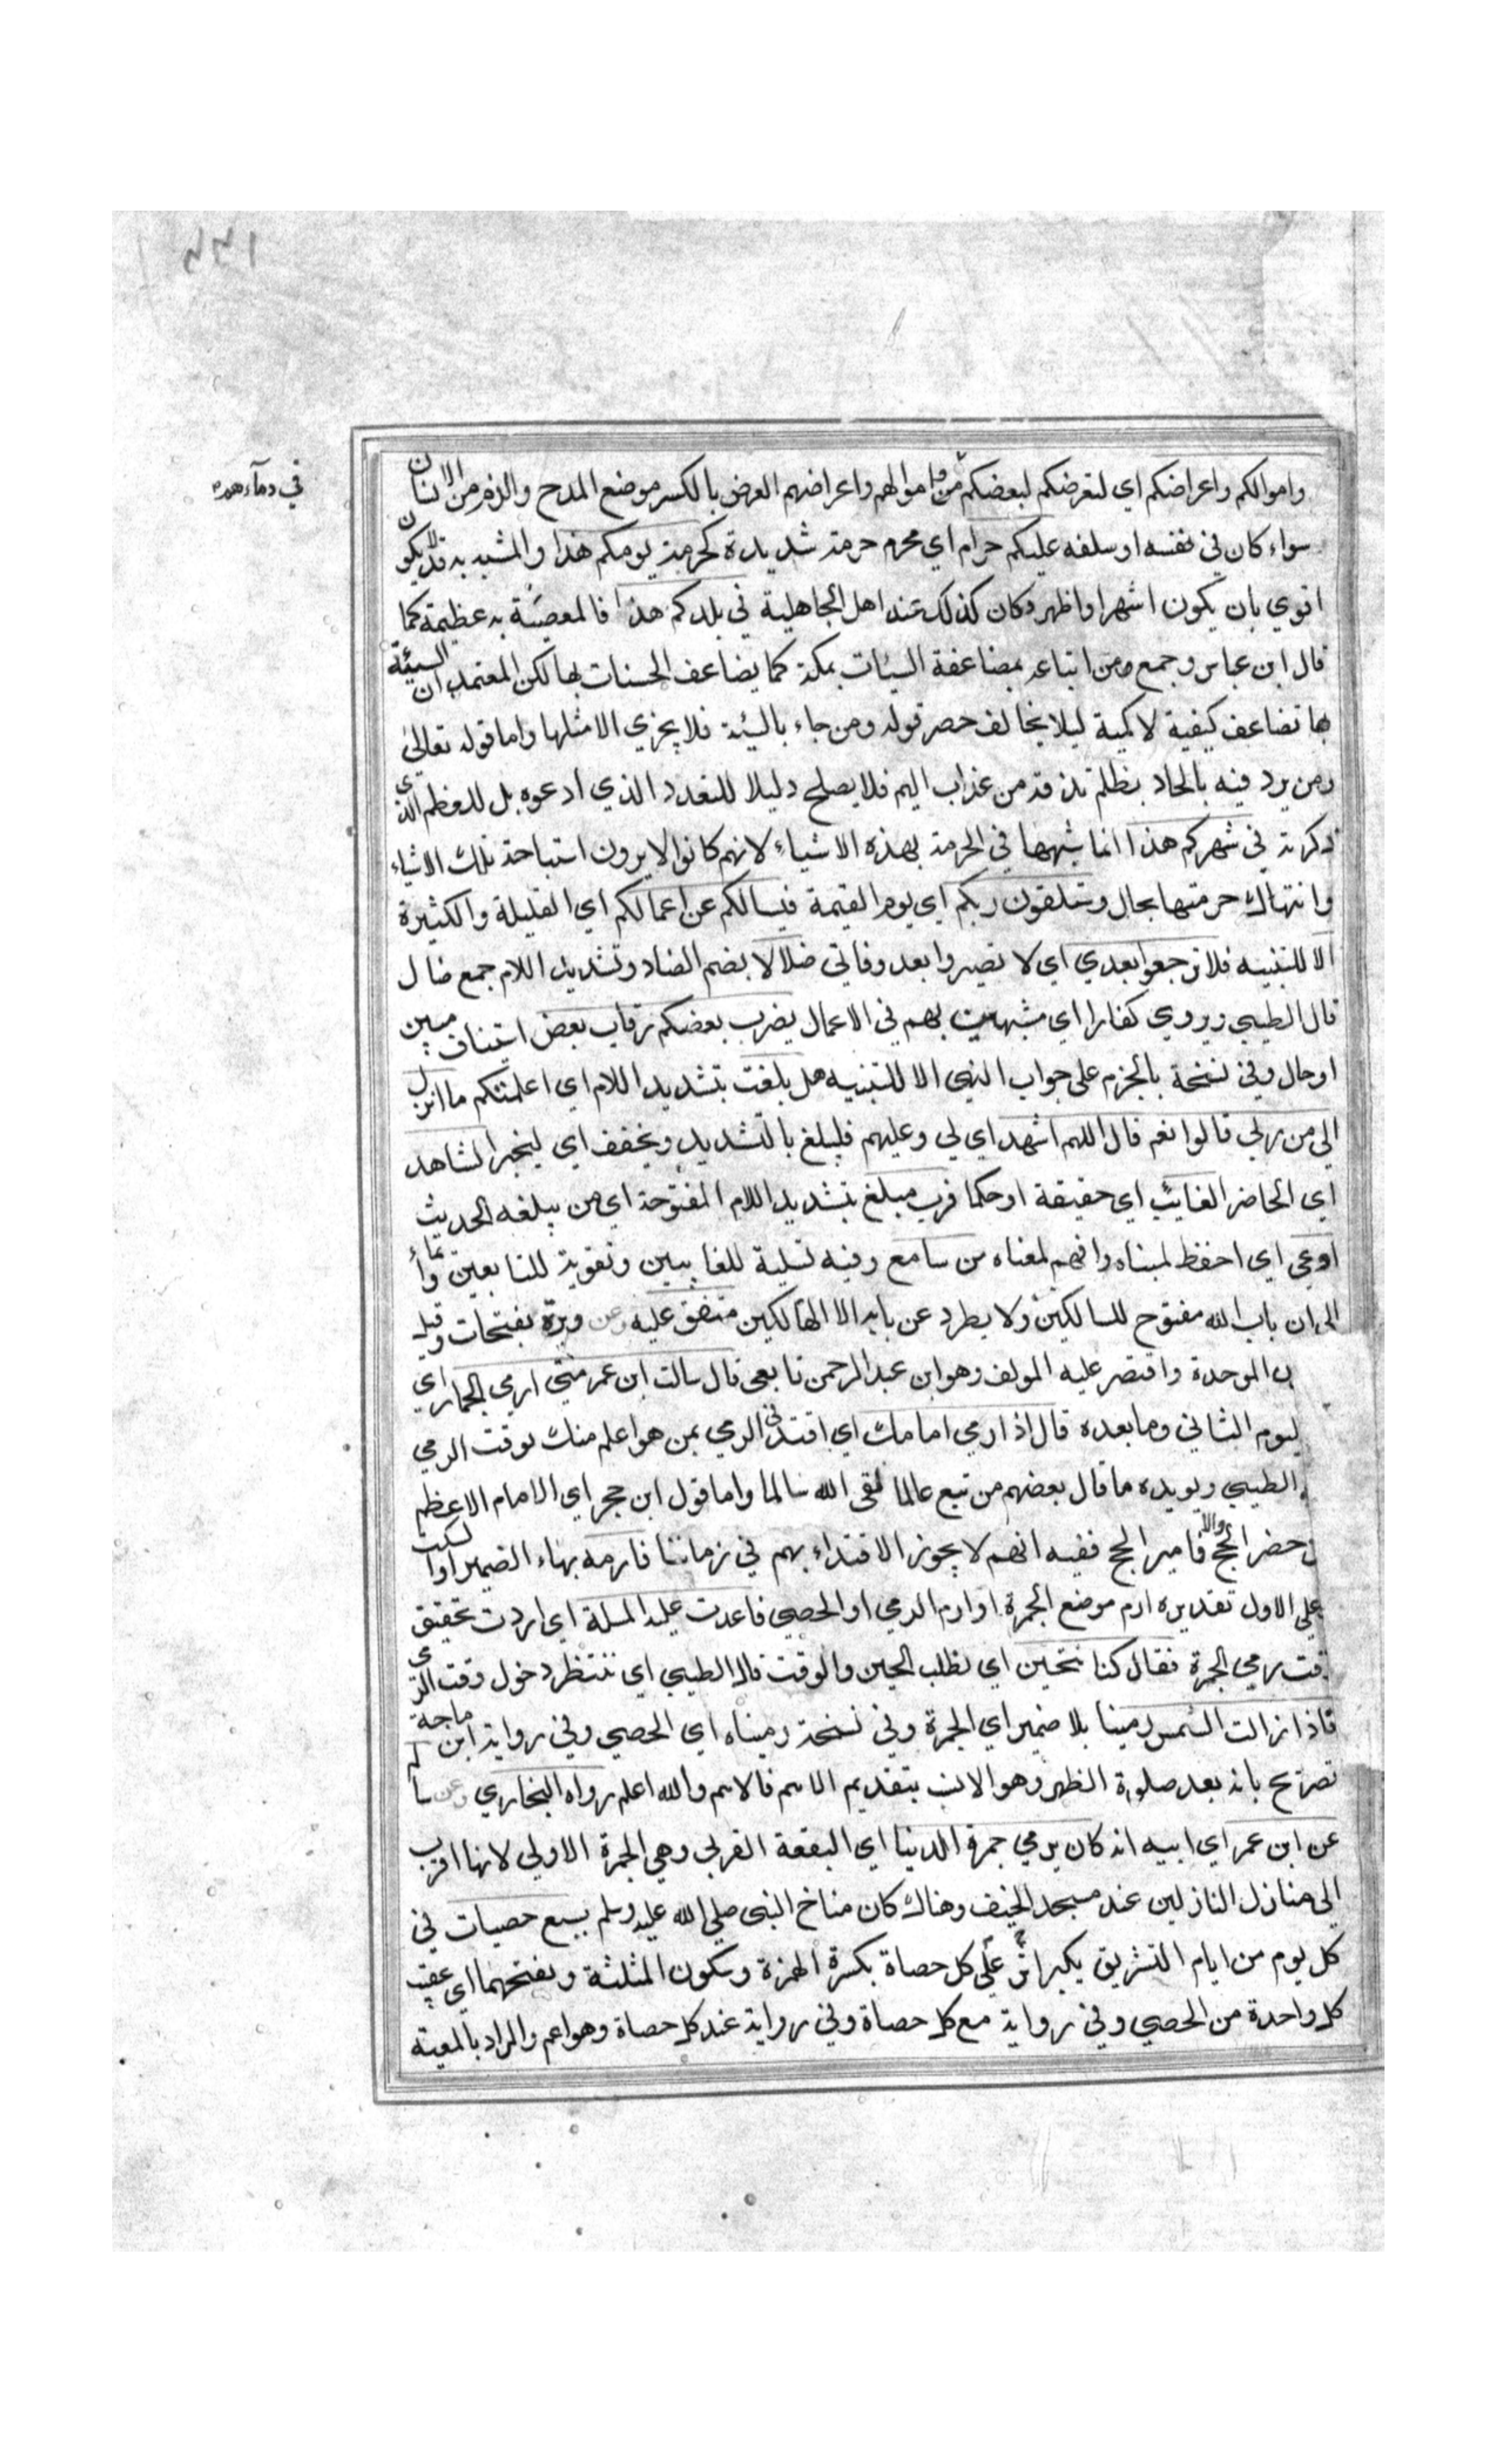 ١٣٣
في دمآءهم
واموالكم واعراضكم اي لتعرضكم لبعضكم من واموالهم واعراضهم العرض بالكسر موضع المدح والذم من الانسان
سواء كان في نفسه او سلفه عليكم حرام اي محرم حرمة شديدة كحرمة يومكم هذا والمشبه به قد يكون
اقوي بان يكون اشهر او اظهر وكان كذلك عند اهل الجاهلية في بلدكم هذا فالمعصية به عظيمة كما
قال ابن عباس وجمع ومن اتباعه بمضاعفة السيات بمكة كما يضاعف الحسنات بها لكن المعتمد ان السيئة
بها تضاعف كيفية لا كمية ليلا يخالف حصر قوله ومن جاء بالسيئة فلا يجزي الا مثلها واما قوله تعالى
ومن يرد فيه بالحاد بظلم نذقه من عذاب اليم فلا يصلح دليلا للتعدد الذي ادعوه بل للعظم الذي
ذكرته في شهركم هذا انما شبهها في الحرمة بهذه الاشياء لانهم كانوا لا يرون استباحة تلك الاشياء
وانتهاك حرمتها بحال وستلقون ربكم اي يوم القيمة فيسالكم عن اعمالكم اي القليلة والكثيرة
الا للتنبيه فلا ترجعوا بعدي اي لا تصيروا بعد وفاتي ضلالا بضم الضاد وتشديد اللام جمع ضال
قال الطيبي ويروي كفارا اي مشبهين بهم في الاعمال يضرب بعضكم رقاب بعض استيناف مبين
او حال وفي نسخة بالجزم على جواب النهي الا للتنبيه هل بلغت بتشديد اللام اي اعلمتكم ما انزل
الي من ربي قالوا نعم قال اللهم اشهد اي لي وعليهم فليبلغ بالتشديد ويخفف اي ليخبر الشاهد
اي الحاضر الغايب اي حقيقة او حكما فرب مبلغ بتشديد اللام المفتوحة اي من يبلغه الحديث
اوعي اي احفظ لمبناه وافهم لمعناه من سامع وفيه تسلية للغايبين وتقوية للتابعين وايماء
الى ان باب الله مفتوح للسالكين ولا يطرد عن بابه الا الهالكين متفق عليه وعن وبرة بفتحات وقيل
الموحدة واقتصر عليه المولف وهو ابن عبد الرحمن تابعي قال سالت ابن عمر متي ارمي الجمار اي
ليوم الثاني وما بعده قال اذا رمي امامك اي اقتد في الرمي بمن هو اعلم منك بوقت الرمي
الطيبي ويويده ما قال بعضهم من تبع عالما لقي الله سالما واما قول ابن حجر اي الامام الاعظم
ن حضر الحج والا فامير الحج ففيه انهم لا يجوز الاقتداء بهم في زماننا فارمه بهاء الضمير او السكت
على الاول تقديره ارم موضع الجمرة او ارم الرمي او الحصي فاعدت عليه المسلة اي اردت تحقيق
وقت رمي الجمرة فقال كنا نتحين اي نطلب الحين والوقت قال الطيبي اي ننتظر دخول وقت الرمي
فاذا زالت الشمس رمينا بلا ضمير اي الجمرة وفي نسخة رميناه اي الحصي وفي رواية ابن ماجة
تصريح بانه بعد صلوة الظهر وهو الانسب بتقديم الاهم فالاهم والله اعلم رواه البخاري وعن سالم
عن ابن عمر اي ابيه انه كان يرمي جمرة الدنيا اي البقعة القربى وهي الجمرة الاولي لانها اقرب
الى منازل النازلين عند مسجد الخيف وهناك كان مناخ النبي صلى الله عليه وسلم بسبع حصيات في
كل يوم من ايام التشريق يكبر اثر على كل حصاة بكسرة الهمزة وسكون المثلثة وبفتحهما اي عقيب
كل واحدة من الحصي وفي رواية مع كل حصاة وفي رواية عند كل حصاة وهو اعم والمراد بالمعية